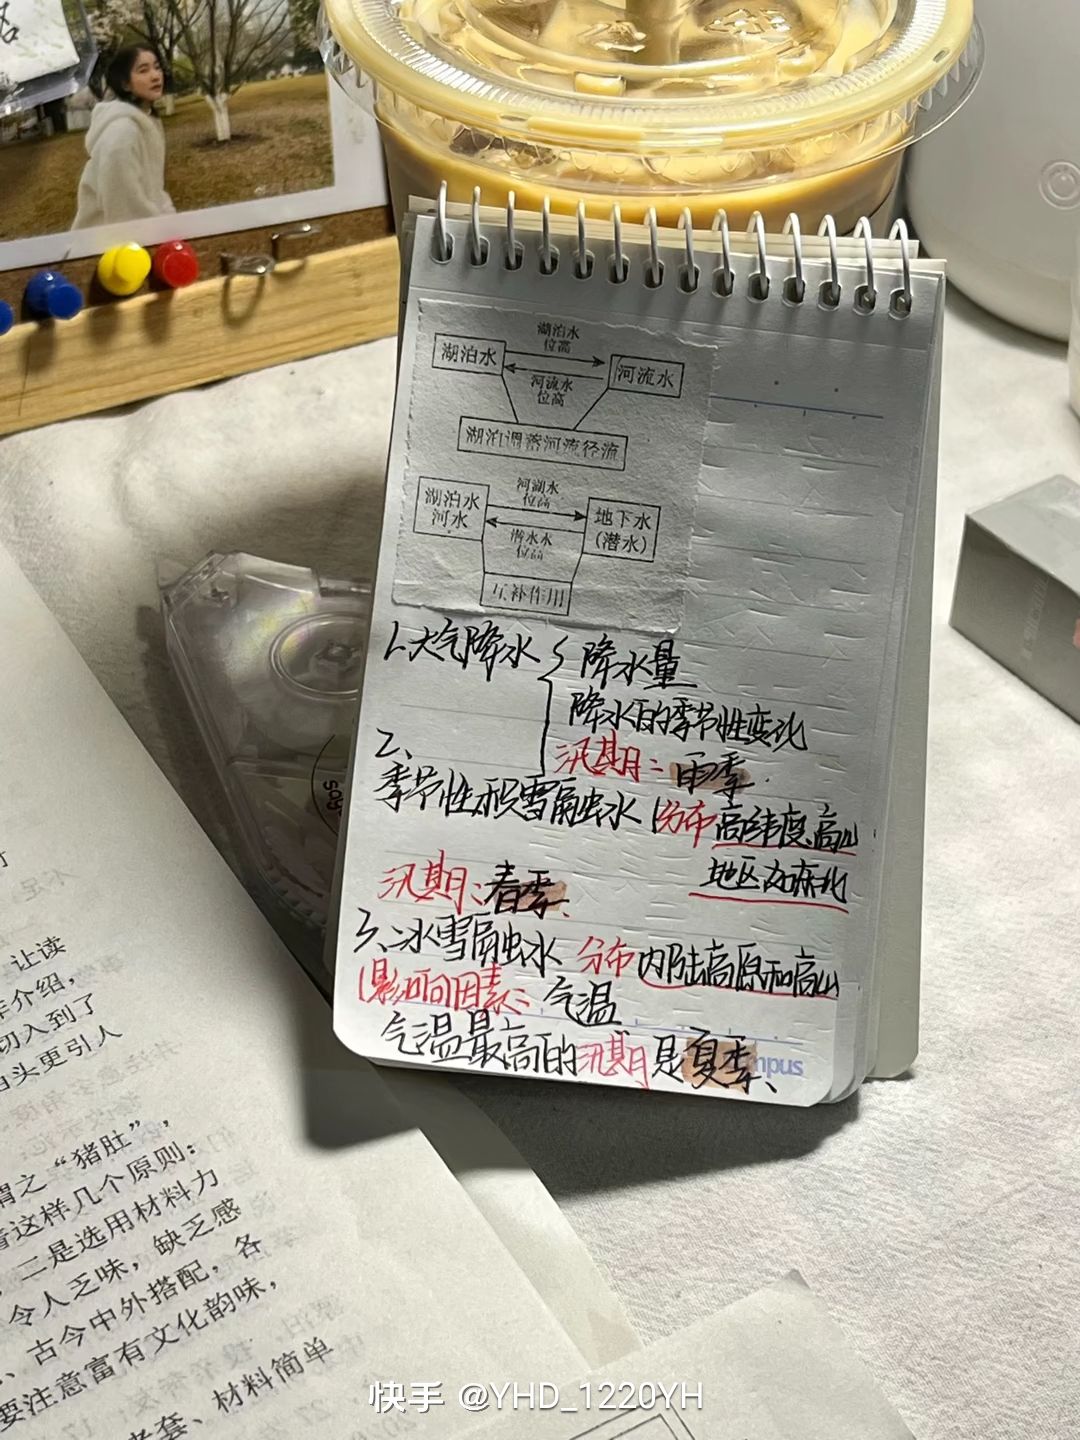 湖泊水
湖泊水
位高
河流水
位高
河流水
湖泊调蓄河流径流
湖泊水
河水
河湖水
位高
潜水水
位高
地下水
(潜水)
互补作用
1.大气降水 { 降水量
降水的季节性变化
汛期：雨季.
2、
季节性积雪融水 (分布高纬度、高山
地区为东北
汛期：春季.
3、冰雪融水 分布 内陆高原和高山
(影响因素：气温
气温最高的汛期是夏季、
mpus
soy
让读
介绍，
切入到了
头更引人
谓之“猪肚”，
着这样几个原则：
二是选用材料力
令人乏味，缺乏感
、古今中外搭配，各
要注意富有文化韵味，
套、材料简单
快手 @YHD_1220YH